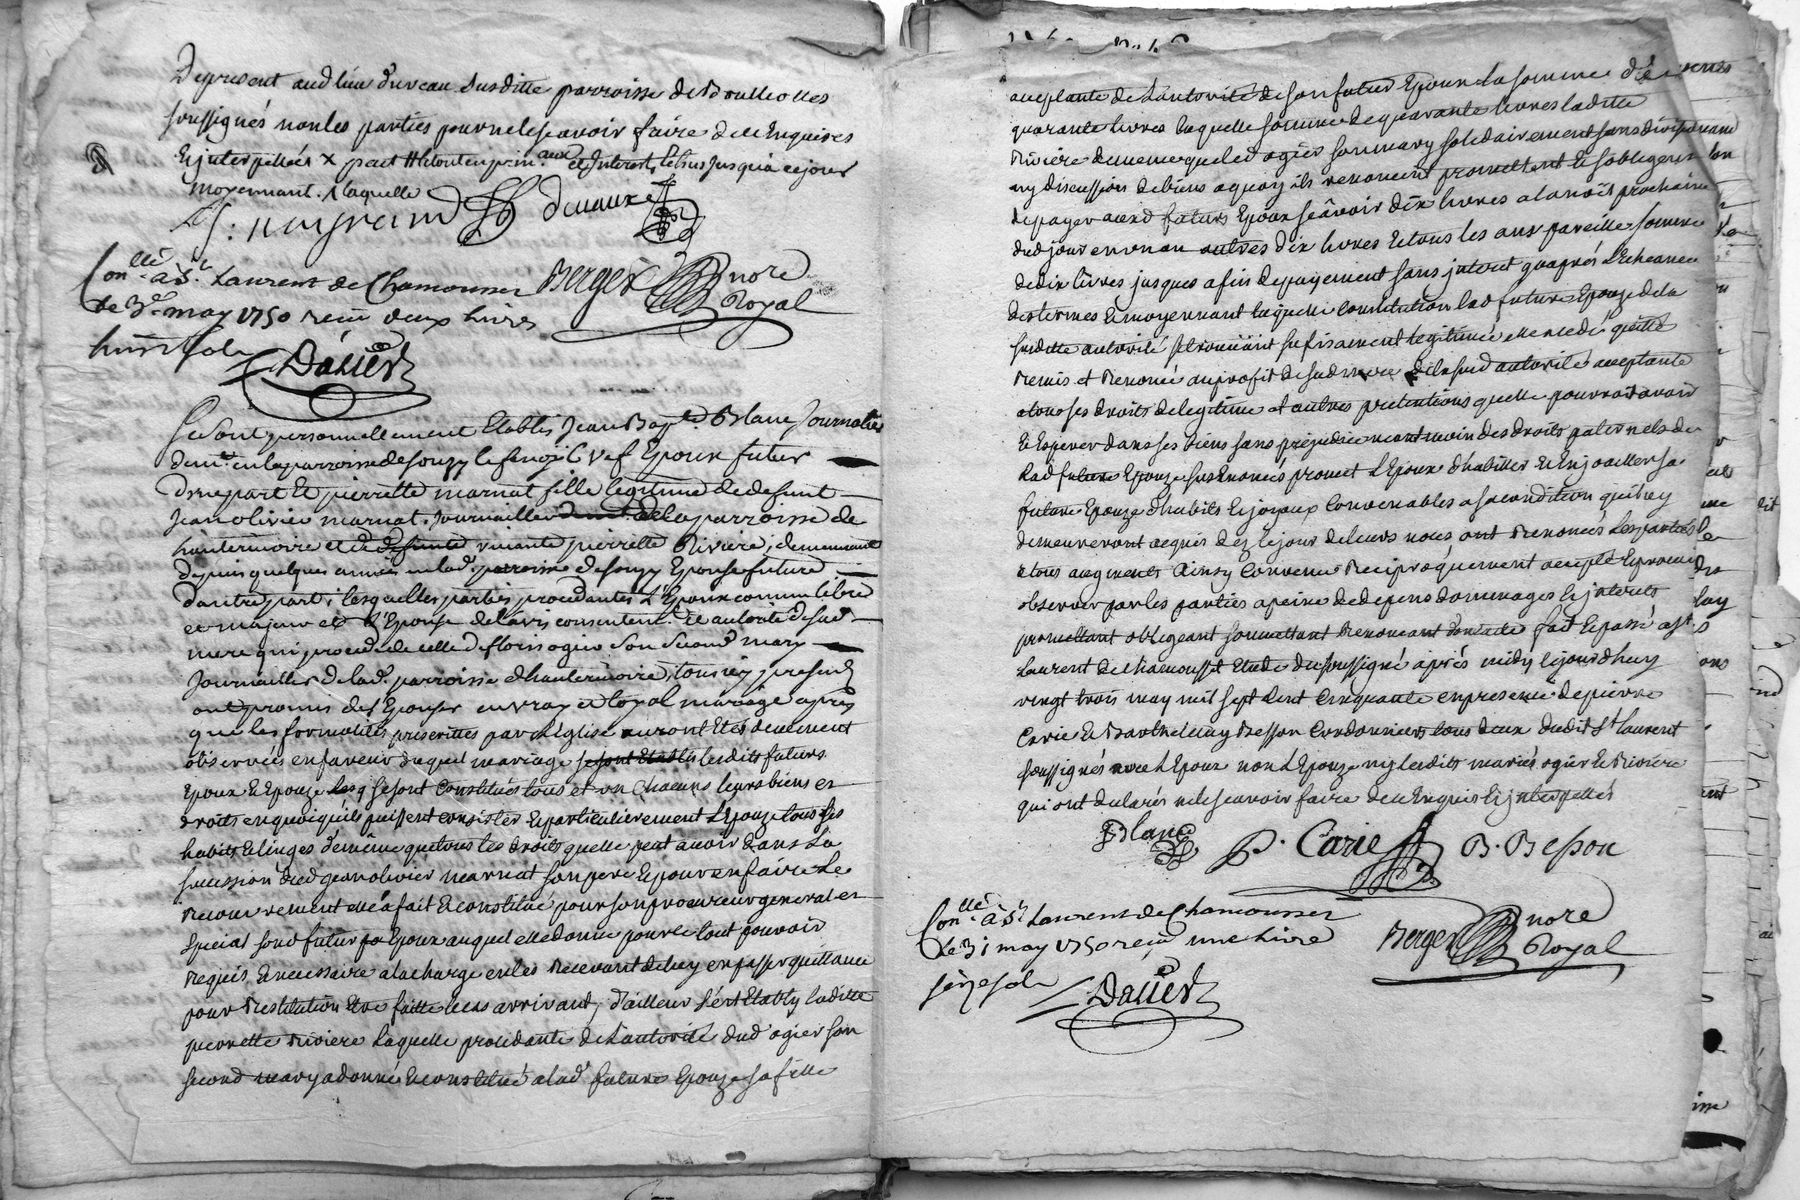 Depresent aud lieu duveau susditte parroisse de Brullioles
soussignés non les parties pour ne le sçavoir faire de ce Enquises
Et jnterpellées x pact # letout en prin.aux et Interest echus jusqua ce jour
moyennant. / laquelle
Devaux
Con.llé à St Laurent de Chamousset Berger nore
le 3e may 1750 reçu deux livres Royal
huit sols
Dalier
Se sont personnellement Etablis Jean Bap.te Blanc Journalier
dem.t en la parroisse de souzy Epoux futur
d'une part Et pierrette marnat fille legitime de defunt
Jean olivier marnat Journaillier de la parroisse de
hauterivoire et de vivante pierrette Riviere, demeurant
depuis quelques années en lad. parroisse de souzy Epouse future
d'autre part ; lesquelles parties procedantes L'Epoux comme libre
et majeur et L'Epouse de l'avis consentem.t Et autorité de sad.
mere qui procede de celle de floris ogier son second mary
Journaillier de lad. parroisse d'hauterivoire, tous icy presents
ont promis de s'Epouser en vray et loyal mariage après
que les formalités prescrittes par l'Eglise auront Etés deuement
observées en faveur duquel mariage se sont Etablis lesdits futurs
Epoux Et Epouze se sont Constitués tous et un Chacuns leurs biens et
droits en quoi qu'ils puissent consister Et particulierement L'Epouze tous ses
habits Et linges de même que tous les droits quelle peut avoir dans La
succession dud jean olivier marnat son pere Et pour en faire Le
Recouvrement elle a fait Et constitué pour son procureur general et
special sond futur Epoux auquel elle donne pour le tout pouvoir
Requis Et necessaire a la charge en les Recevant de luy en passer quittance
pour Restitution Etre faitte le cas arrivant, d'ailleur s'est Etably laditte
pierrette Riviere Laquelle procedante de L'autorité dud ogier son
second mary a donné Et constitué a lad future Epouze sa fille
acceptante de L'autorité de son futur Epoux La somme de
quarante livres laquelle somme de quarante livres laditte
Riviere de meme que led ogier son mary solidairement sans division
ny discussion de biens a quoy ils renoncent promettent Et s'obligent
de payer aud futur Epoux sçavoir dix livres a la noël prochaine
dud jour en un an autres dix livres Et tous les ans pareille somme
de dix livres jusques a fin de payement sans jnteret qu'après L'echeance
des termes Et moyennant laquelle Constitution lad future Epouze de la
susditte autorité se trouvant sufisament legitimée elle a cedé quitté
Remis et Renoncé au profit de sad mere de lad autorité acceptante
a tous ses droits de legitime et autres pretentions quelle pourroit avoir
Et Esperer dans ses biens sans prejudice neantmoin des droits paternels de
lad future Epouze susEnoncés promet L'Epoux d'habiller Et Enjoailler sa
future Epouze d'habits Et joyaux Convenables a sa condition qui luy
demeureront acquis dez le jour de leurs noces ont Renoncés Les parties
a tous augments Ainsy Convenu Reciproquement accepté Et promis
observer par les parties a peine de depens dommages Et jnterets
promettant obligeant soumettant Renonceant fait Et passé a St
Laurent de Chamousset Etude du soussigné après midy le jourd'huy
vingt trois may mil sept Cent Cinquante en presence de pierre
Carie Et Barthelemy Besson Cordonniers tous deux dudit St laurent
soussignés avec L'Epoux non L'Epouze ny lesdits mariés ogier Et Riviere
qui ont declarés ne le sçavoir faire de ce Enquis Et jnterpellés
Blanc P. Carie B. Besson
Con.llé à St Laurent de Chamousset
le 31 may 1750 reçu une livre Berger nore
seize sols Royal
Dalier